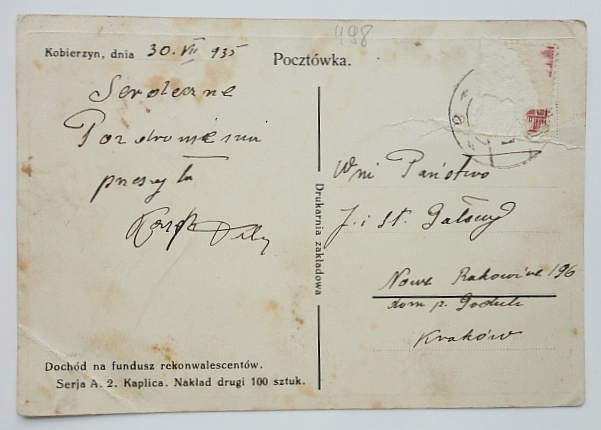 498
Kobierzyn, dnia 30. VII 935
Pocztówka.
Serdeczne
Pozdrowienia
przesyła
Drukarnia zakładowa
Wni Państwo
J. i St.
Nowe Rakowice 196
dom p.
Kraków
Dochód na fundusz rekonwalescentów.
Serja A. 2. Kaplica. Nakład drugi 100 sztuk.